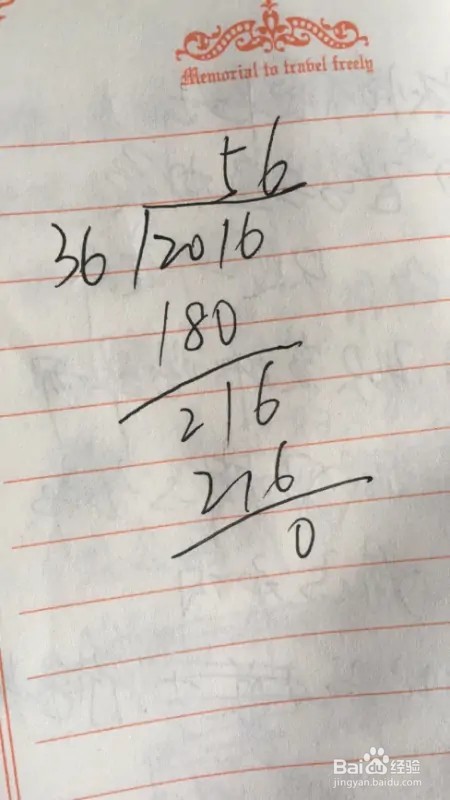 Memorial to travel freely
56
36 2016
180
216
216
0
Baidu 经验
jingyan.baidu.com